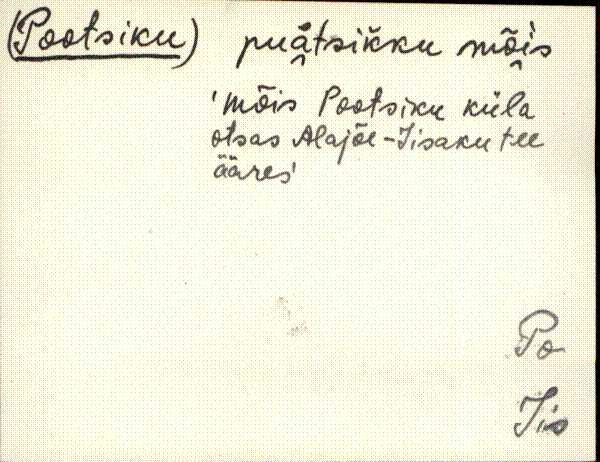 (Pootsiku) puåtsikku mõis
'mõis Pootsiku küla
otsas Alajõe-Iisaku tee
ääres'
Po
Iis